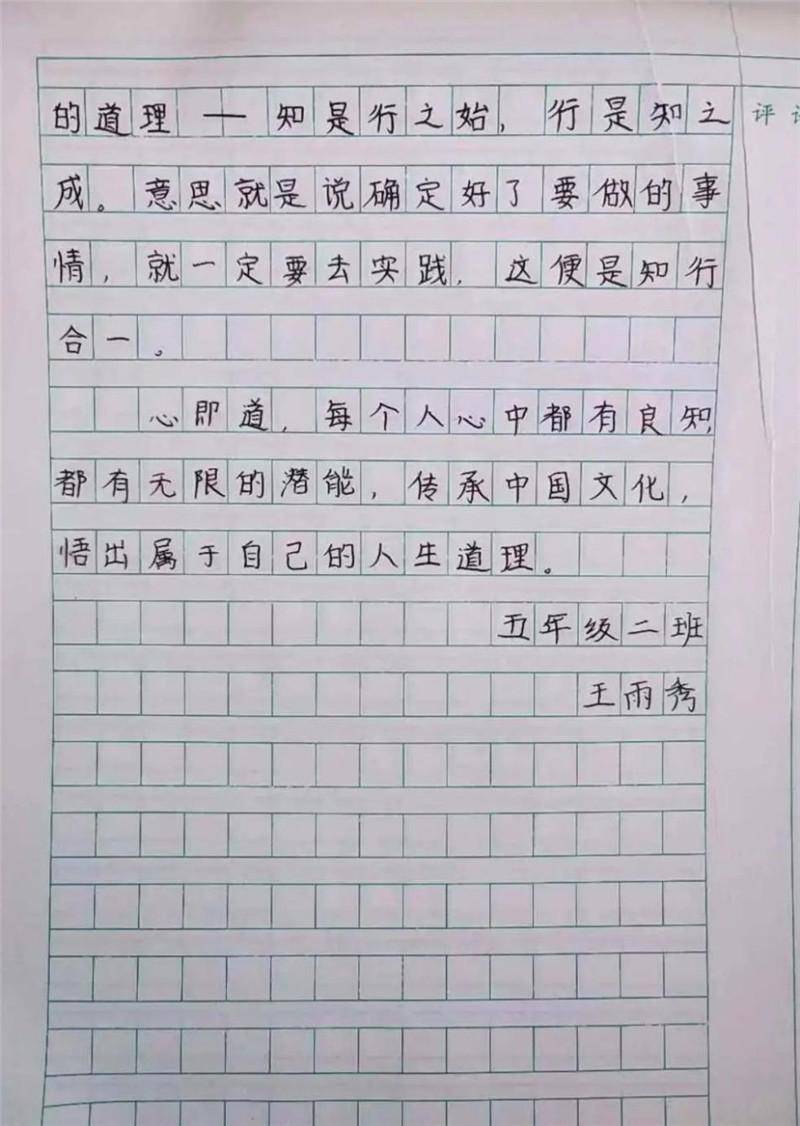 的道理——知是行之始，行是知之
成。意思就是说确定好了要做的事
情，就一定要去实践，这便是知行
合一。
心即道，每个人心中都有良知，
都有无限的潜能，传承中国文化，
悟出属于自己的人生道理。
五年级二班
王雨秀
评